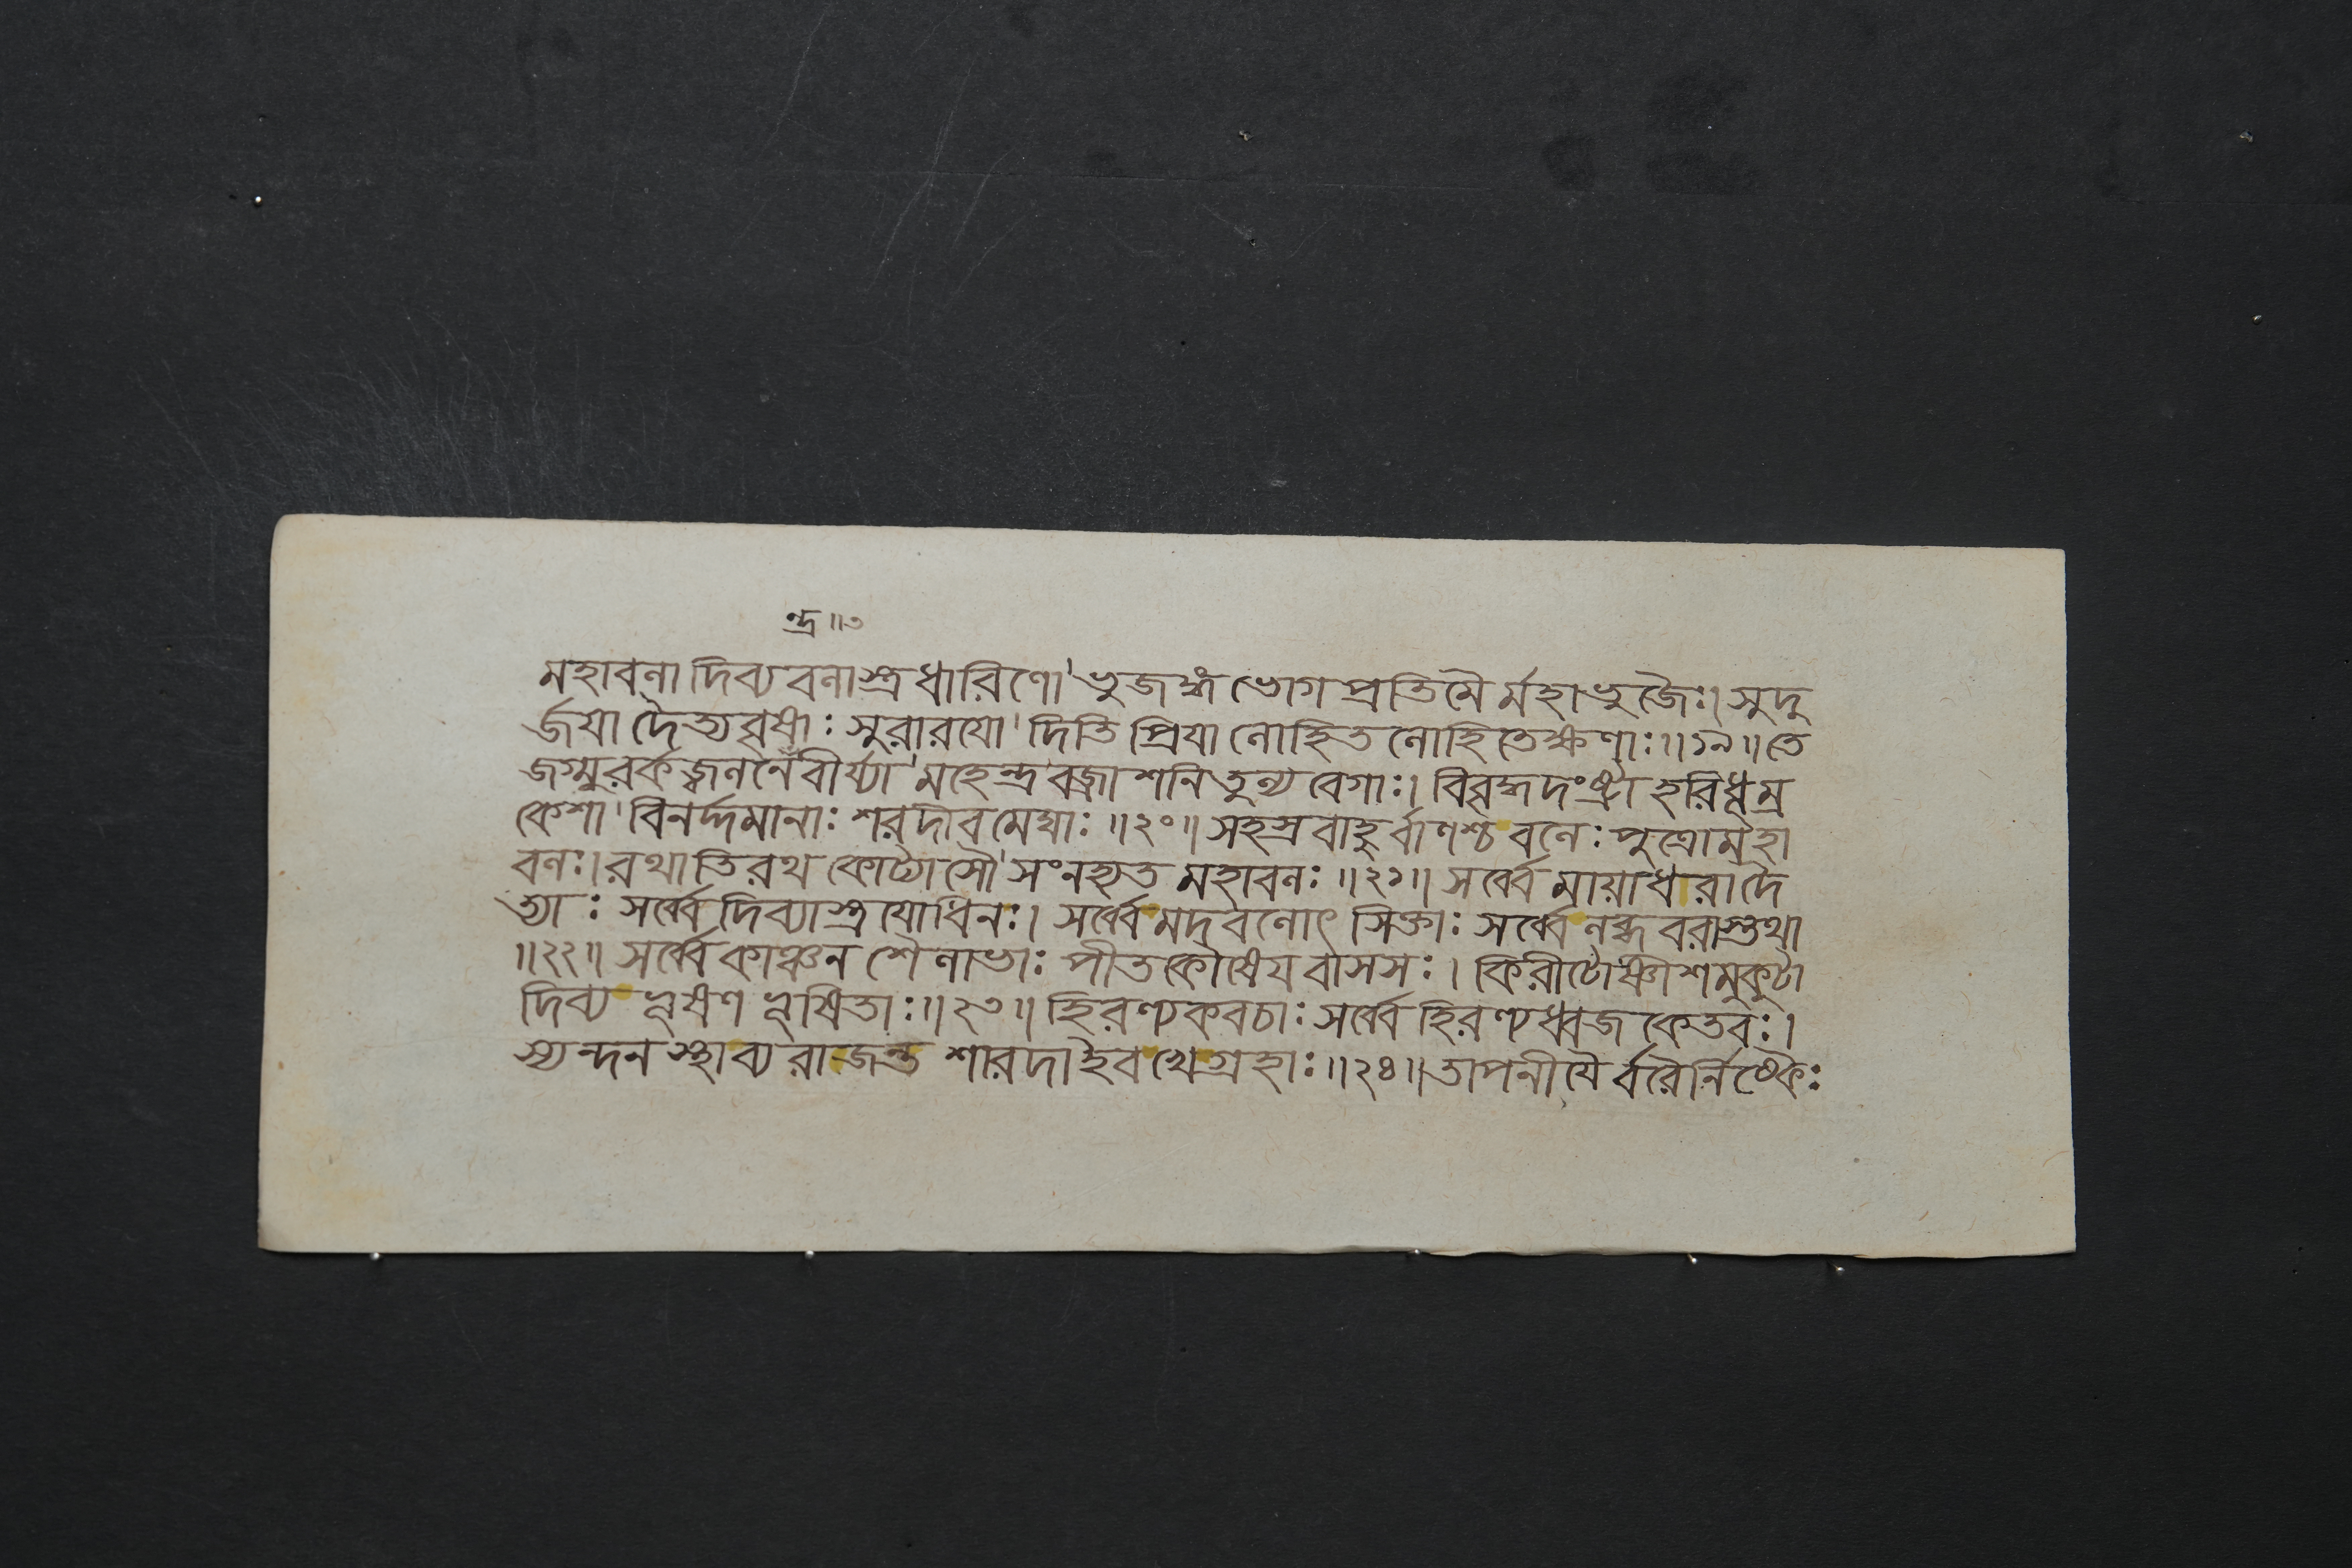 ন্দ্র॥৩
মহাবলা দিব্যবলাস্ত্রধারিণো'ভুজঙ্গভোগপ্রতিমৈর্মহাভুজৈঃ।সুদু
র্জযা দৈত্যবৃষাঃ সুরারযো'দিতিপ্রিযা লোহিতলোহিতেক্ষণাঃ॥১৯॥তে
জগ্মুরর্কজ্বলনেবীর্য্যা'মহেন্দ্রবজ্রাশনিতুল্যবেগাঃ।বিবৃদ্ধদংষ্ট্রা হরিধূম্র
কেশা'বিনর্দ্দমানাঃ শরদীব মেঘাঃ॥২০॥সহস্রবাহুর্বাণশ্চ বলেঃ পুত্রোমহা
বলঃ।রথাতিরথকোট্যাসৌ'সংনহ্যত মহাবলঃ॥২১॥সর্ব্বে মায়াধরাদৈ
ত্যাঃ সর্ব্বে দিব্যাস্ত্রযোধিনঃ।সর্ব্বে মদবলোৎসিক্তাঃ সর্ব্বে লব্ধবরাস্তথা
॥২২॥সর্ব্বে কাঞ্চনশৈলাভাঃ পীতকৌষেযবাসসঃ।কিরীটোষ্ণীশমুকুটা
দিব্য ভূষণভূষিতাঃ॥২৩॥হিরণ্যকবচাঃ সর্ব্বে হিরণ্যধ্বজকেতবঃ।
স্যন্দনস্থাব্যরাজন্ত শারদাইব খেগ্রহাঃ॥২৪॥তাপনীযৈর্বরৈর্নিষ্কৈঃ